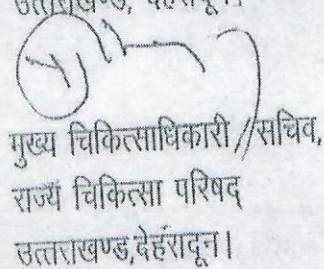 उत्तराखण्ड, देहरादून।
मुख्य चिकित्साधिकारी //सचिव,
राज्य चिकित्सा परिषद्
उत्तराखण्ड,देहरादून।